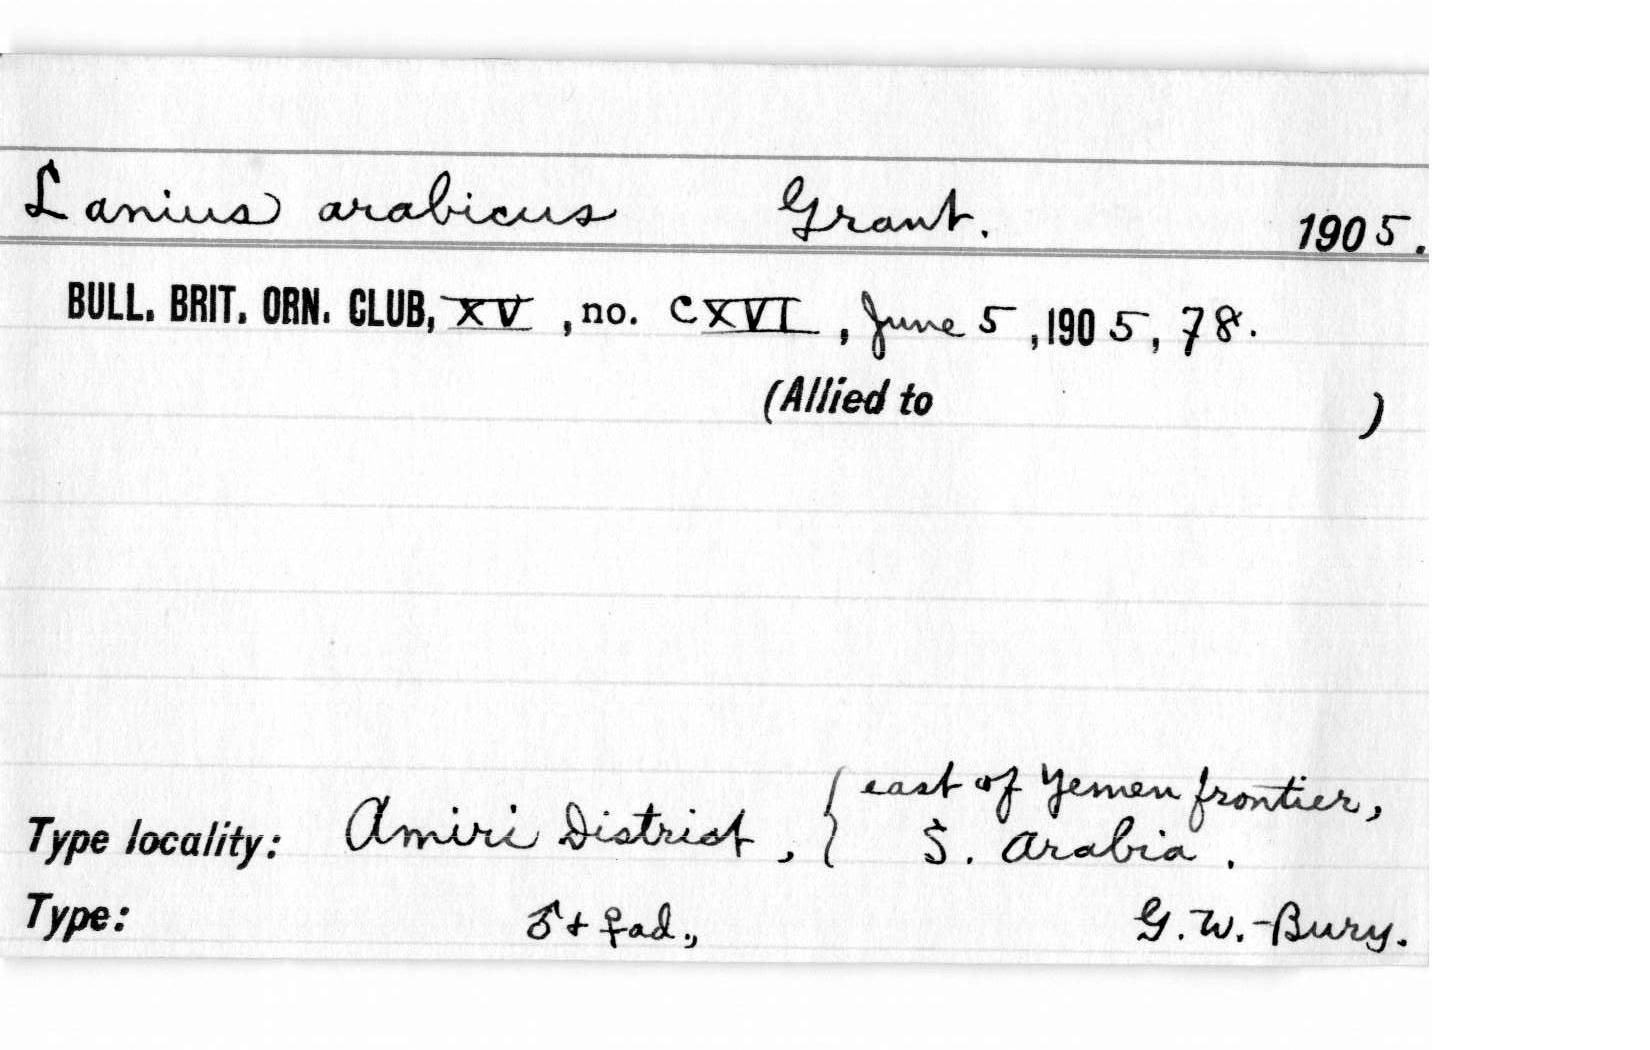 Lanius arabicus Grant. 1905.
BULL. BRIT. ORN. CLUB, XV, no. CXVI, June 5, 1905, 78.
(Allied to )
east of Yemen frontier,
Type locality: Amiri District, { S. Arabia.
Type: ♂ + ♀ ad., G. W. Bury.